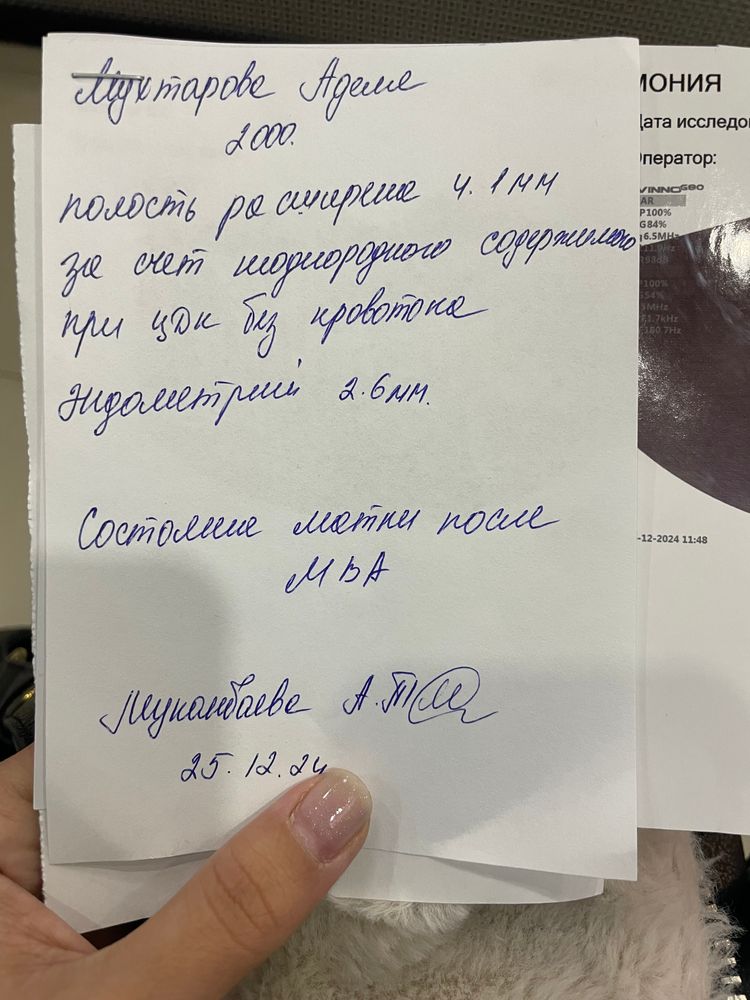 Мухтарова Аделя
2000.
полость расширена 4.1мм
за счет неоднородного содержимого
при ЦДК без кровотока
Эндометрий 2.6мм.
Состояние матки после
МВА
Муканбаева А.Т
25.12.24
МОНИЯ
Дата исследо
Оператор:
VINNO G80
AR
P100%
G84%
6.5MHz
100%
-12-2024 11:48